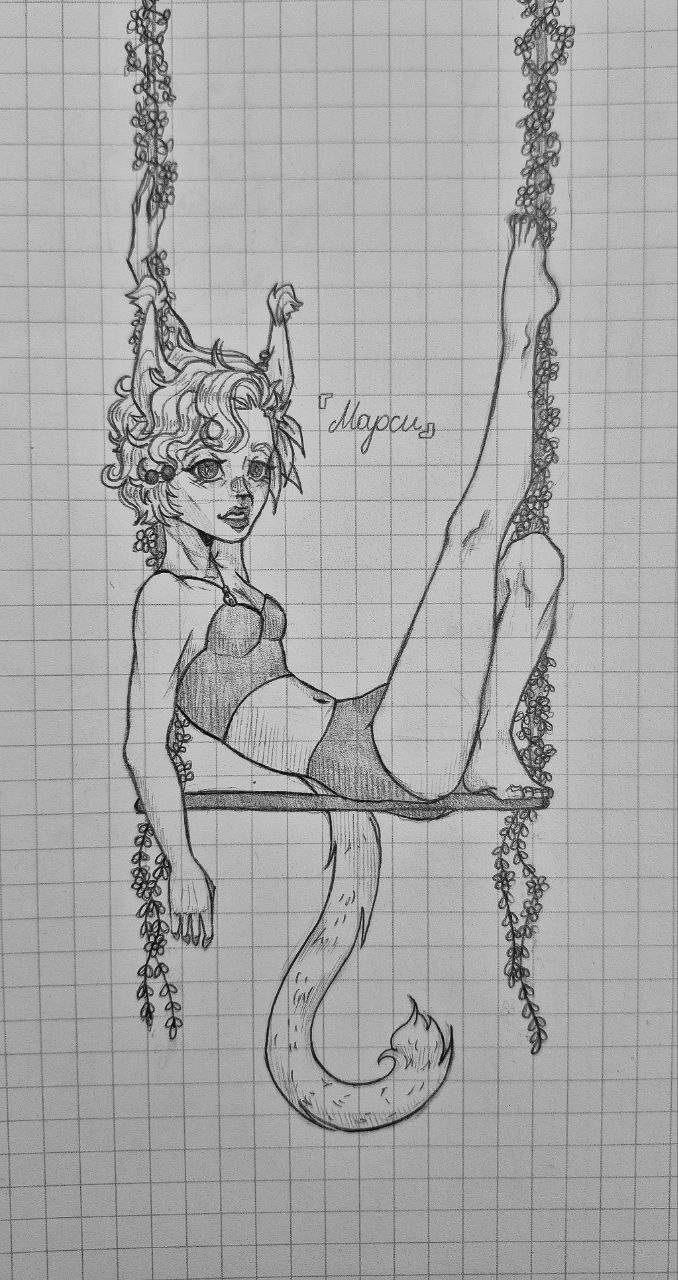 『Марси』